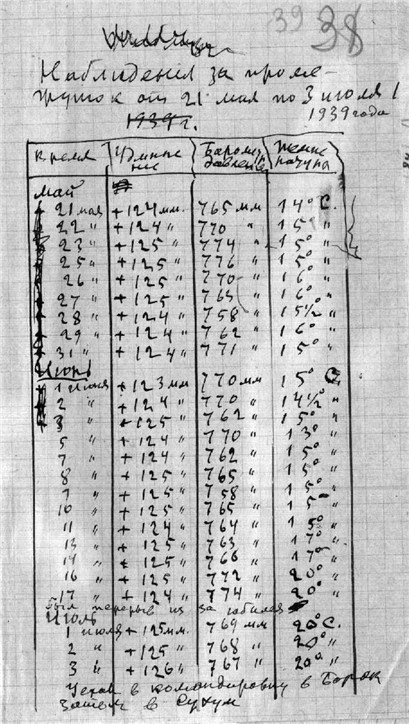 39 38
Наблюдения за проме-
жуток от 21 мая по 3 июля
1939 года
1939 г.
Время
Баром.
давление
Май
21 мая +124 мм. 765 мм 14° C.
22 " +124 " 770 15° "
23 " +125 " 774 " 15° "
25 " +125 " 776 " 15° "
26 " +125 " 770 16° "
27 " +125 " 765 16° "
28 " +124 " 758 15½° "
29 " +124 " 762 " 16° "
31 " +124 " 771 " 15° "
Июнь
1 июня +123 мм 770 мм 15° C
2 " +124 " 770 " 14½° "
3 " +125 " 762 " 15° "
5 " +124 " 770 " 13° "
7 " +124 " 762 " 15° "
8 " +125 " 765 " 15° "
+125 " 758 " 15° "
10 " +125 " 765 " 15°
11 " +124 " 764 " 15° "
13 " +125 " 763 " 17° "
14 " +125 " 17° "
16 " +125 " 772 " 20° "
17 " +124 " 774 " 20° "
был перерыв из за юбилея
Июль
1 июля +125 мм. 769 мм 20° C.
2 " +125 " 768 " 20° "
3 " +126 " 767 " 20° "
в командировку в Борок
Затем в Сухум